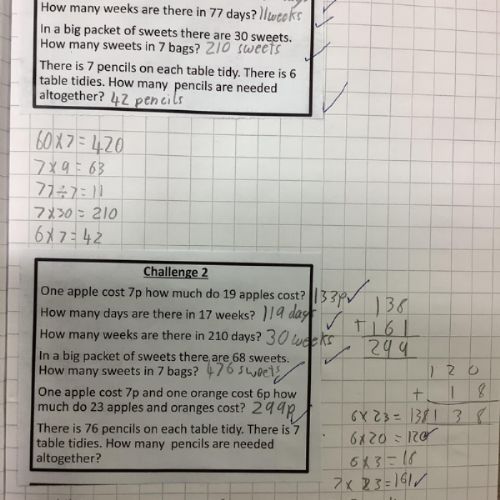 How many weeks are there in 77 days? 11weeks
In a big packet of sweets there are 30 sweets.
How many sweets in 7 bags? 210 sweets
There is 7 pencils on each table tidy. There is 6
table tidies. How many pencils are needed
altogether? 42 pencils
60x7=420
7x9=63
77÷7=11
7x30=210
6x7=42
Challenge 2
One apple cost 7p how much do 19 apples cost? 133p
How many days are there in 17 weeks? 119 days
How many weeks are there in 210 days? 30 weeks
In a big packet of sweets there are 68 sweets.
How many sweets in 7 bags? 476 sweets
One apple cost 7p and one orange cost 6p how
much do 23 apples and oranges cost? 299p
There is 76 pencils on each table tidy. There is 7
table tidies. How many pencils are needed
altogether?
138
+161
299
120
+ 18
138
6x23=138
6x20=120
6x3=18
7x23=161